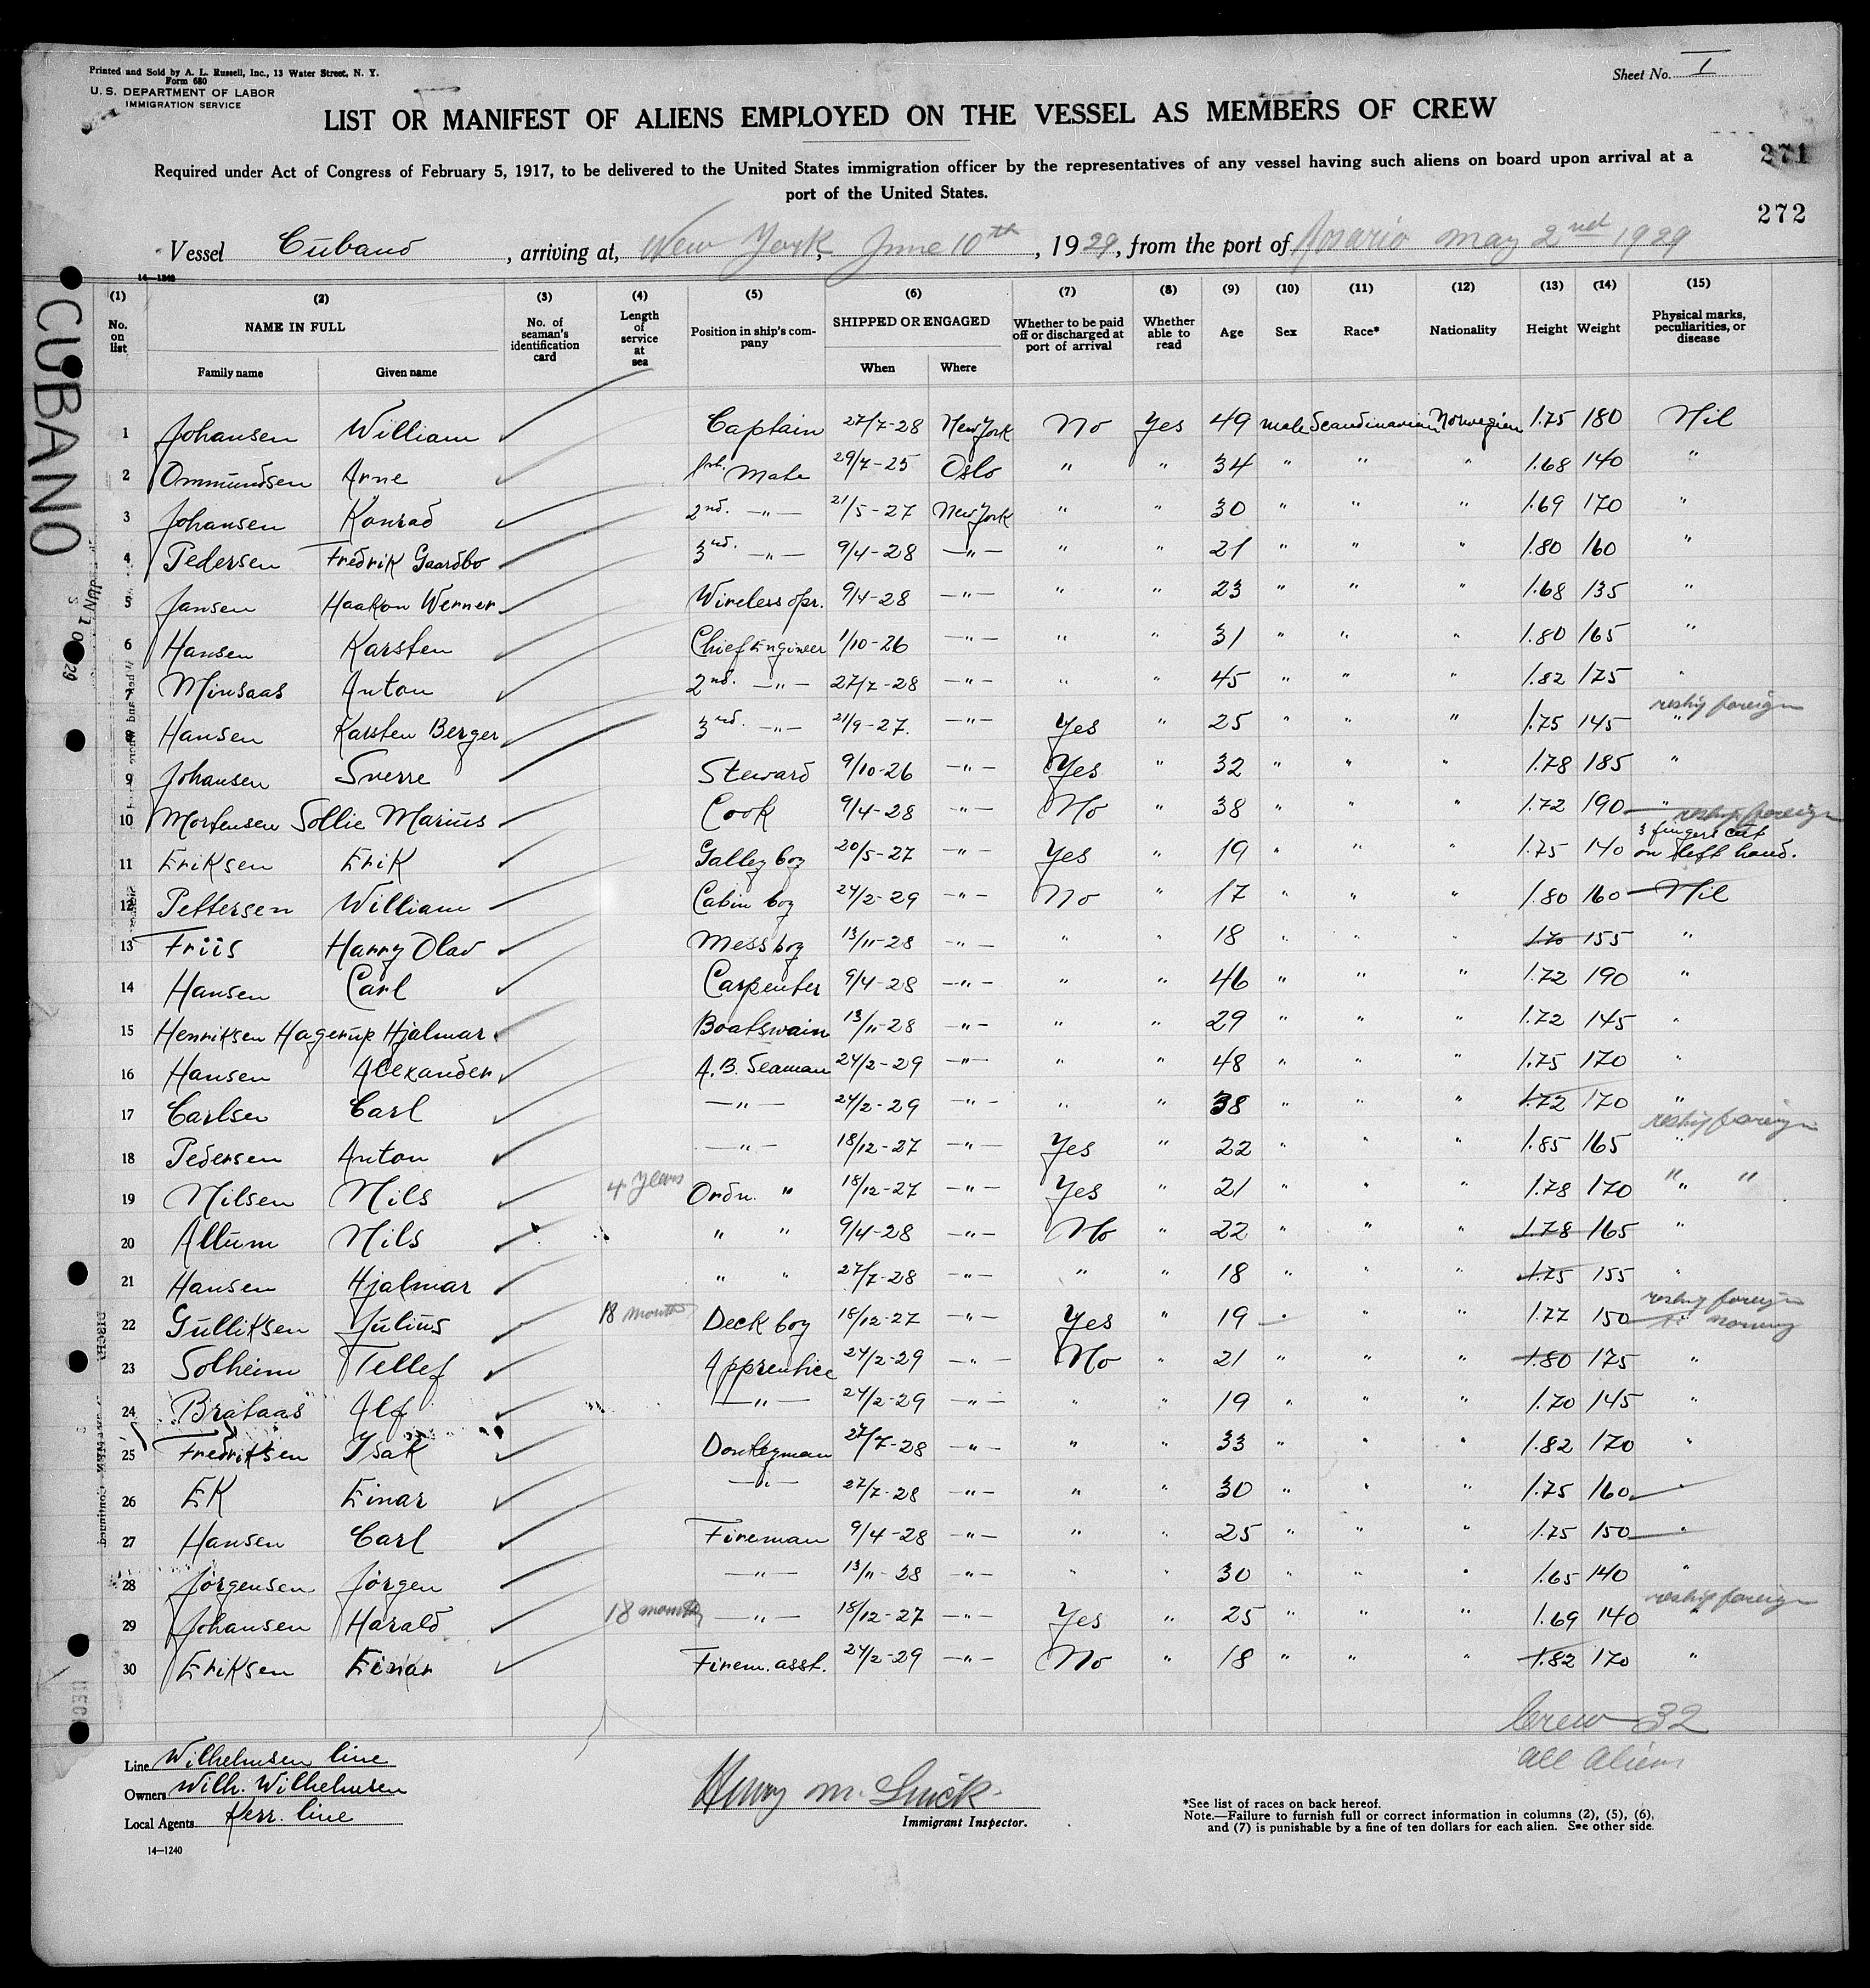 Printed and Sold by A. L. Russell, Inc., 13 Water Street, N. Y.
Form 680
U. S. DEPARTMENT OF LABOR
IMMIGRATION SERVICE
Sheet No. I
LIST OR MANIFEST OF ALIENS EMPLOYED ON THE VESSEL AS MEMBERS OF CREW
271
Required under Act of Congress of February 5, 1917, to be delivered to the United States immigration officer by the representatives of any vessel having such aliens on board upon arrival at a
port of the United States.
272
Vessel Cubano, arriving at, New York, June 10th, 1929, from the port of Rosario May 2nd 1929
14—1240
CUBANO
(1) (2) (3) (4) (5) (6) (7) (8) (9) (10) (11) (12) (13) (14) (15)
No. on list NAME IN FULL Family name Given name No. of seaman's identification card Length of service at sea Position in ship's company SHIPPED OR ENGAGED When Where Whether to be paid off or discharged at port of arrival Whether able to read Age Sex Race* Nationality Height Weight Physical marks, peculiarities, or disease
1 Johansen William Captain 27/7-28 New York No Yes 49 male Scandinavian Norwegian 1.75 180 Nil
2 Ommundsen Arne Mate 29/7-25 Oslo " " 34 " " " 1.68 140 "
3 Johansen Konrad 2nd. —"— 21/5-27 New York " " 30 " " " 1.69 170 "
4 Pedersen Fredrik Gaardbo 3rd. —"— 9/4-28 —"— " " 21 " " " 1.80 160 "
5 Jansen Haakon Werner Wireless opr. 9/4-28 —"— " " 23 " " " 1.68 135 "
6 Hansen Karsten Chief Engineer 1/10-26 —"— " " 31 " " " 1.80 165 "
7 Minsaas Anton 2nd. —"— 27/7-28 —"— " " 45 " " " 1.82 175 "
8 Hansen Karsten Berger 3rd. —"— 21/9-27. —"— Yes " 25 " " " 1.75 145 " reship foreign
9 Johansen Sverre Steward 9/10-26 —"— Yes " 32 " " " 1.78 185 "
10 Mortensen Sollie Marius Cook 9/4-28 —"— No " 38 " " " 1.72 190 "
reship foreign
11 Eriksen Erik Galley boy 20/5-27 —"— Yes " 19 " " " 1.75 140 3 fingers cut on left hand.
12 Pettersen William Cabin boy 24/2-29 —"— No " 17 " " " 1.80 160 Nil
13 Friis Harry Olav Mess boy 13/11-28 —"— " " 18 " " " 1.70 155 "
14 Hansen Carl Carpenter 9/4-28 —"— " " 46 " " " 1.72 190 "
15 Henriksen Hagerup Hjalmar Boatswain 13/11-28 —"— " " 29 " " " 1.72 145 "
16 Hansen Alexander A.B. Seaman 24/2-29 —"— " " 48 " " " 1.75 170 "
17 Carlsen Carl —"— 24/2-29 —"— " " 38 " " " 1.72 170 "
18 Pedersen Anton —"— 18/12-27 —"— Yes " 22 " " " 1.85 165 " reship foreign
19 Nilsen Nils 4 years Ordn. " 18/12-27 —"— Yes " 21 " " " 1.78 170 " " "
20 Allum Nils " " 9/4-28 —"— No " 22 " " " 1.78 165 "
21 Hansen Hjalmar " " 27/7-28 —"— " " 18 " " " 1.75 155 "
22 Gulliksen Julius 18 months Deck boy 18/12-27 —"— Yes " 19 " " " 1.77 150 reship foreign
23 Solheim Tellef Apprentice 24/2-29 —"— No " 21 " " " 1.80 175 "
24 Brataas Alf —"— 24/2-29 —"— " " 19 " " " 1.70 145 "
25 Fredriksen Isak Donkeyman 27/7-28 —"— " " 33 " " " 1.82 170 "
26 Ek Einar —"— 27/7-28 —"— " " 30 " " " 1.75 160 "
27 Hansen Carl Fireman 9/4-28 —"— " " 25 " " " 1.75 150 "
28 Jørgensen Jørgen —"— 13/11-28 —"— " " 30 " " " 1.65 140 "
29 Johansen Harald 18 months —"— 18/12-27 —"— Yes " 25 " " " 1.69 140 " reship foreign
30 Eriksen Einar Firem. asst. 24/2-29 —"— No " 18 " " " 1.82 170 "
Crew 32
all aliens
Line Wilhelmsen line
Owners Wilh. Wilhelmsen
Local Agents Kerr. line
Henry M.
Immigrant Inspector.
*See list of races on back hereof.
Note.—Failure to furnish full or correct information in columns (2), (5), (6),
and (7) is punishable by a fine of ten dollars for each alien. See other side.
14—1240